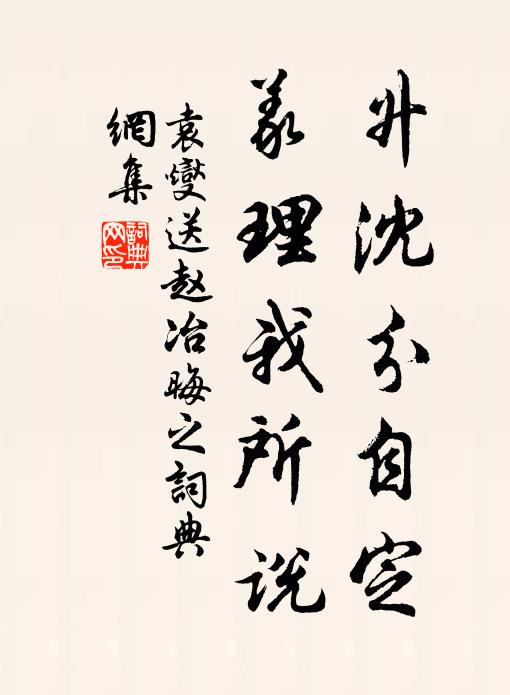 升沈分自定
義理我所説
袁燮送赵冶晦之詞典
網集
詞典
网印